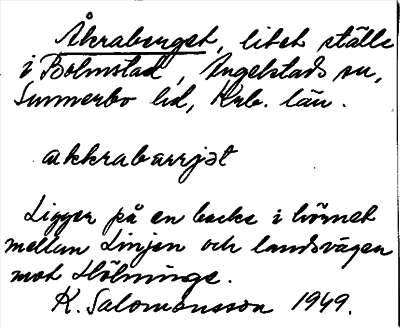 Åkraberget, litet ställe
i Bolmstad, Angelstads sn,
Sunnerbo hd, Krb. län.
akkrabarrjət
Ligger på en backe i hörnet
mellan Linjen och landsvägen
mot Hölminge.
K. Salomonsson 1949.